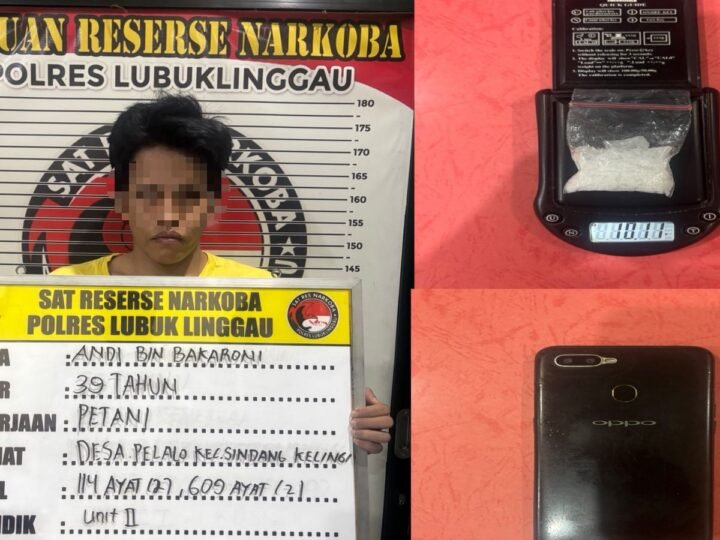 UAN RESERSE NARKOBA
POLRES LUBUKLINGGAU
180
175
170
165
160
155
150
145
SAT RESERSE NARKOBA
POLRES LUBUK LINGGAU
SAT RES NARKOBA
A : ANDI BIN BAKARONI
R : 39 TAHUN
ERJAAN : PETANI
AT : DESA PELALO KEC. SINDANG KELINGI
L : 114 AYAT (2), 609 AYAT (2)
DIK : Unit II
QUICK GUIDE
Calibration
10.11
oppo